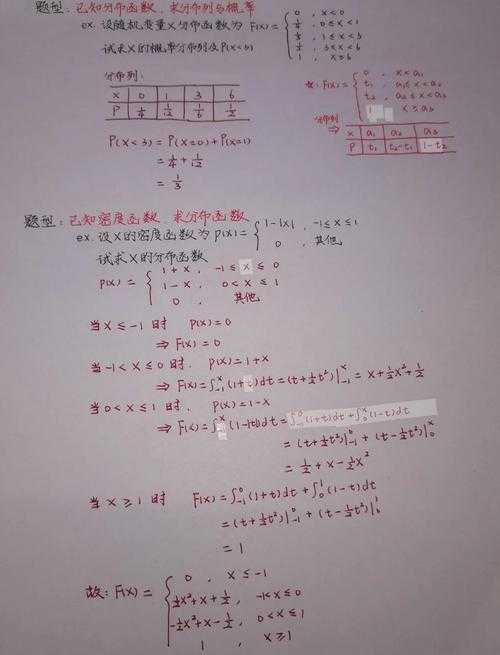 题型：已知分布函数，求分布列与概率
ex. 设随机变量X分布函数为 F(x)= { 0 , x<0
1/4 , 0≤x<1
1/3 , 1≤x<3
1/2 , 3≤x<6
1 , x≥6
试求X的概率分布列及P(X<3)
分布列:
X 0 1 3 6
P 1/4 1/12 1/6 1/2
P(X<3) = P(X=0)+P(X=1)
= 1/4 + 1/12
= 1/3
F(x)= { 0 , x<a₁
t₁ , a₁≤x<a₂
t₂ , a₂≤x<a₃
1 , x≥a₃
分布列
⇒ X a₁ a₂ a₃
P t₁ t₂-t₁ 1-t₂
题型：已知密度函数，求分布函数
ex. 设X的密度函数为 p(x)= { 1-|x| , -1≤x≤1
0 , 其他
试求X的分布函数
p(x) = { 1+x , -1≤x≤0
1-x , 0<x≤1
0 , 其他
当 x≤-1 时 p(x)=0
⇒ F(x)=0
当 -1<x≤0 时, p(x)=1+x
⇒ F(x)=∫₋₁ˣ(1+t)dt=(t+½t²)|₋₁ˣ = x+½x²+½
当 0<x≤1 时, p(x)=1-x
⇒ F(x)=∫₋₁ˣ(1-|t|)dt=∫₋₁⁰(1+t)dt+∫₀ˣ(1-t)dt
= (t+½t²)|₋₁⁰ + (t-½t²)|₀ˣ
= ½+x-½x²
当 x≥1 时 F(x)=∫₋₁⁰(1+t)dt+∫₀¹(1-t)dt
= (t+½t²)|₋₁⁰ + (t-½t²)|₀¹
= 1
故: F(x) = { 0 , x≤-1
½x²+x+½ , -1<x≤0
-½x²+x-½ , 0<x≤1
1 , x≥1